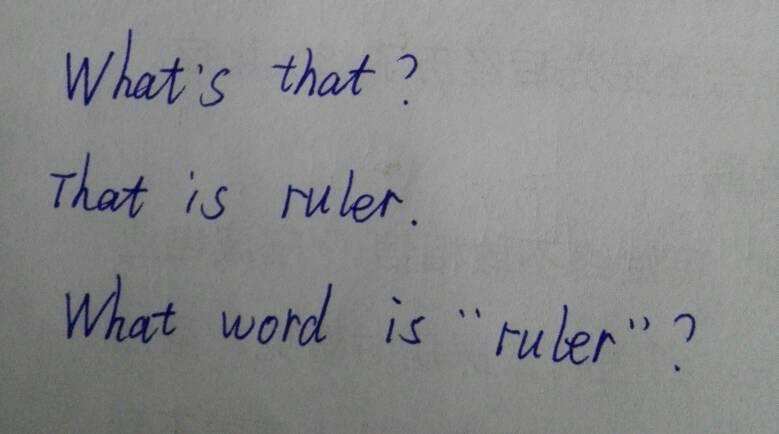 What's that?
That is ruler.
What word is "ruler"?